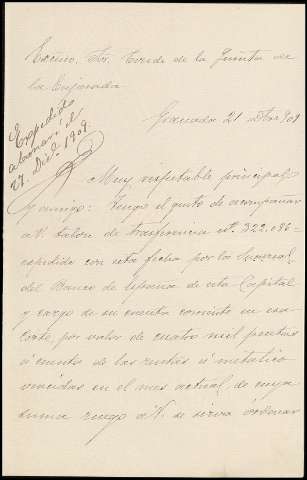 Excmo. Sr. Conde de la Quinta de
la Enjarada
Expedido
abonaré el
27. Dicbe 1909
Granada 21 dbre 909
Muy respetable principal
y amigo: Tengo el gusto de acompañar
a V. talón de trasferencia nº. 322.086
espedido con esta fecha por la Sucursal
del Banco de España de esta Capital
y cargo de su cuenta corriente en esa
Corte, por valor de cuatro mil pesetas
á cuenta de las rentas á metálico
vencidas en el mes actual, de cuya
suma ruego a V. se sirva ordenar